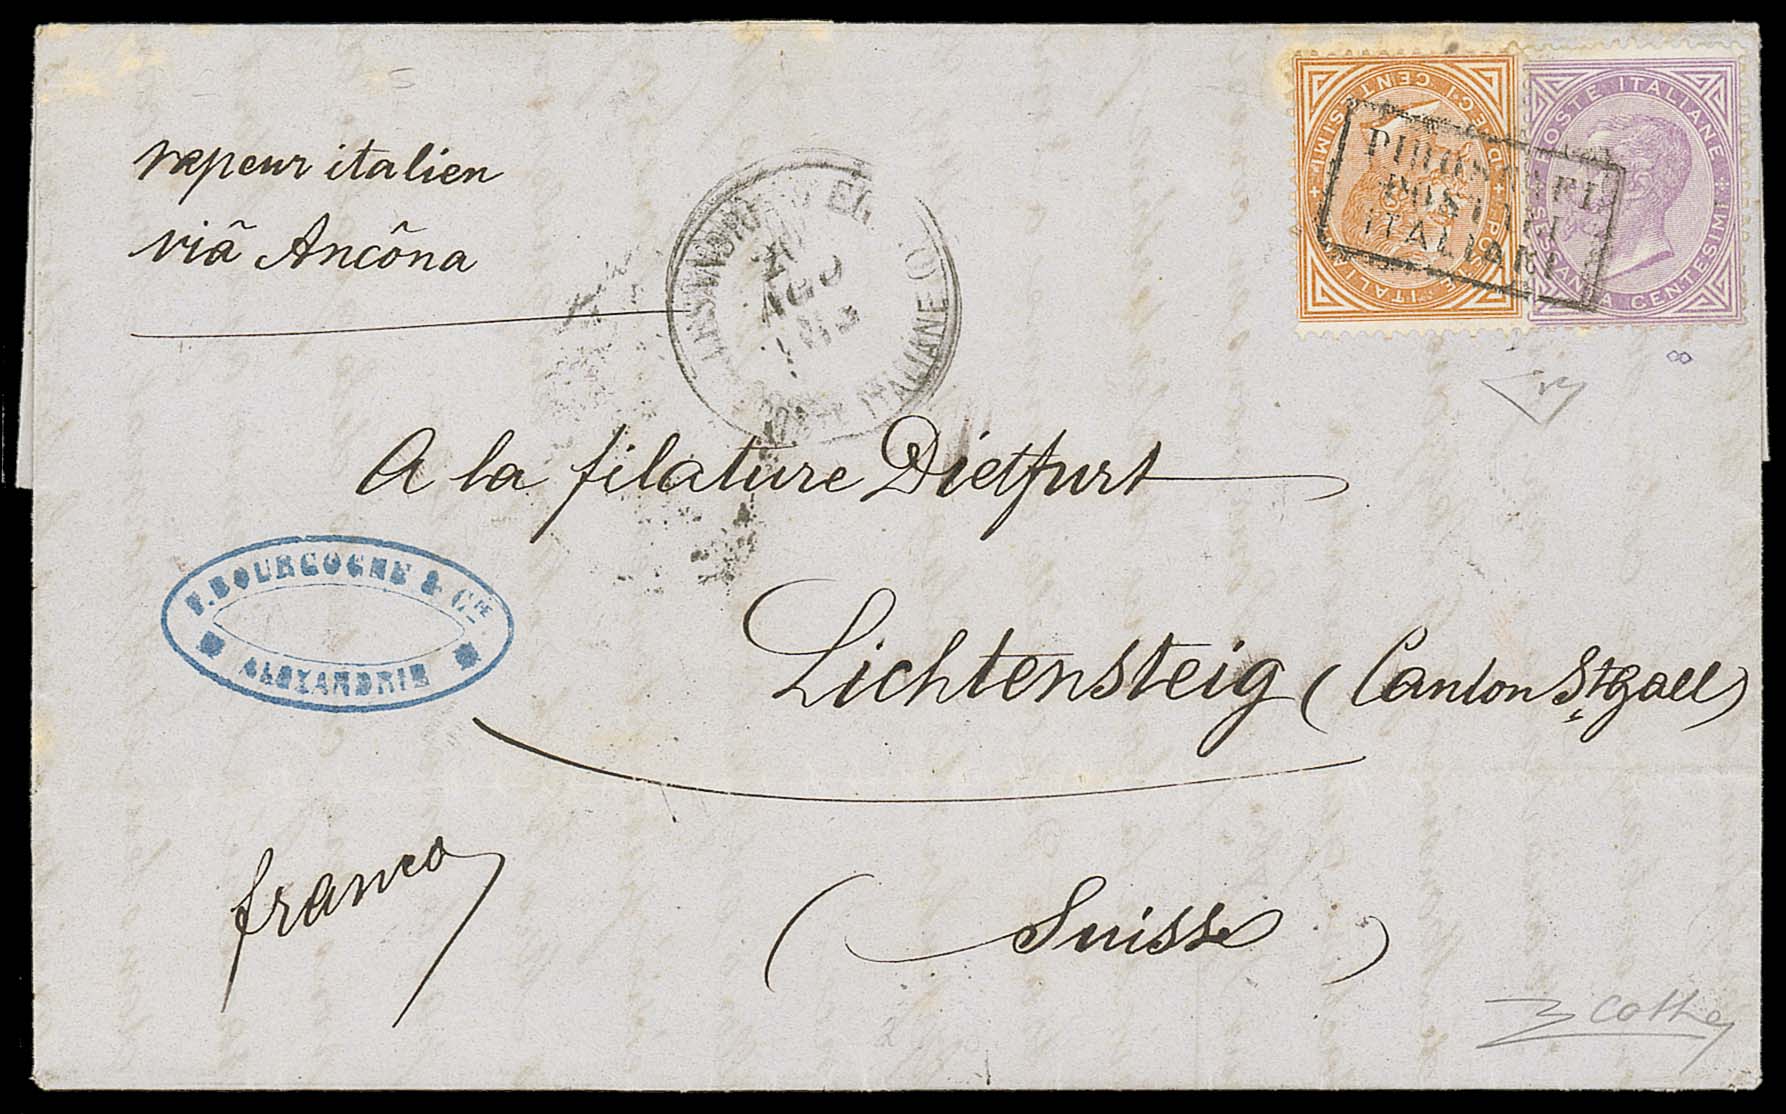 vapeur italien
viâ Ancôna
POSTE ITALIANE
AGO
PIROSCAFI
POSTALI
ITALIANI
DIECI CENTESIMI
POSTE ITALIANE
POSTE ITALIANE
SESSANTA CENTESIMI
A la filature Dietfurt
Lichtensteig (Canton St Gall)
(Suisse)
franco
V. BOURGOGNE & CIE
ALEXANDRIE